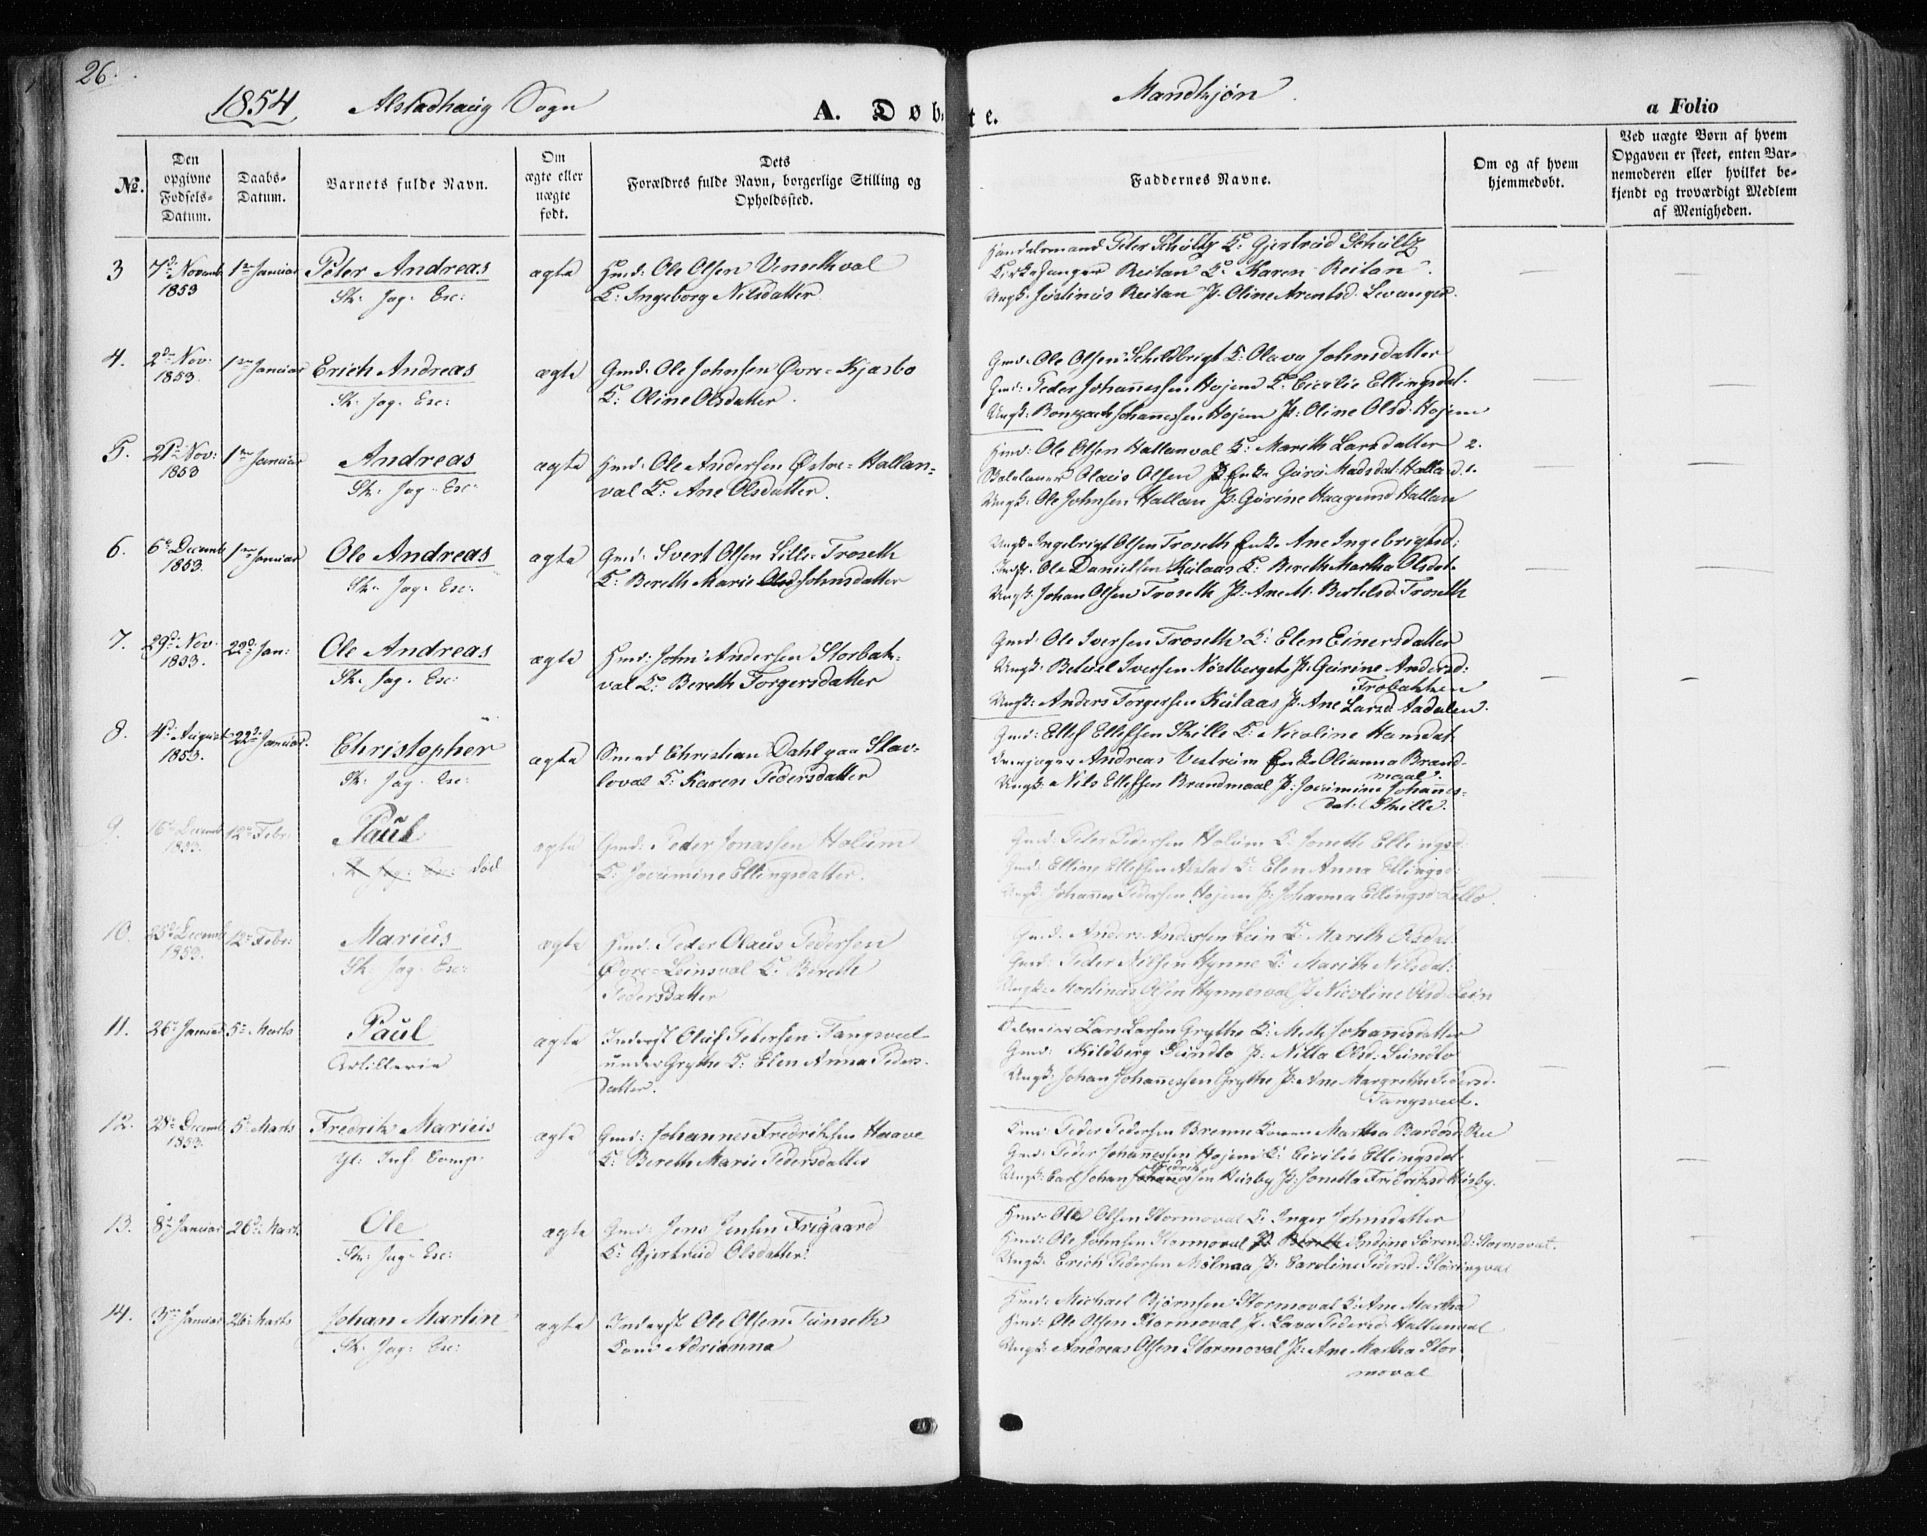 26.
1854 Alstadhaug Sogn
A. Døbte.
Mandkjøn.
a Folio
No.
Den opgivne Fødsels-Datum.
Daabs-Datum.
Barnets fulde Navn.
Om ægte eller uægte født.
Dets Forældres fulde Navn, borgerlige Stilling og Opholdssted.
Faddernes Navne.
Om og af hvem hjemmedøbt.
Ved uægte Børn af hvem Opgaven er skeet, enten Barnemoderen eller hvilket bekjendt og troværdigt Medlem af Menigheden.
3 7de Novemb 1853 1ste Januar Peter Andreas ægte Hmd: Ole Olsen Vensethval
Sk. Jag. Esc:
K: Ingeborg Nilsdatter
Handelsmand Peter Schültz K: Gjertrud Schültz
Kirkesanger Reitan K: Karen Reitan
Ungk: Justinus Reitan P. Oline Arentsd. Levanger.
4. 2den Nov. 1853. 1ste Januar Erich Andreas ægte Gmd: Ole Johnsen Øvre-Kjasbo
Sk. Jag. Esc:
K: Oline Olsdatter.
Gmd: Ole Olsen Scheldbrigt K: Olava Johnsdatter
Gmd: Peder Johannessen Hojem K: Cicelie Ellingsdat.
Ungk: Johannessen Hojem P: Oline Olsd. Hojem
5. 21de Nov: 1853 1ste Januar Andreas ægte Hmd: Ole Andersen Østre-Hallan-
Sk: Jag. Esc:
val K: Ane Olsdatter.
Hmd: Ole Olsen Hallanval K: Mareth Larsdatter 2.
Olaus Olsen P. Enke Guru Madsdat. Halland 1.
Ungk: Ole Johnsen Hallan P: Gurine Haagensd Hallan
6. 6te Decemb 1853. 1ste Januar Ole Andreas ægte Gmd: Ivert Olsen Lille Troseth
Sk. Jag. Esc:
K: Bereth Marie Olsd Johnsdatter
Ungk: Ingebrigt Olsen Troseth Enke Ane Ingebrigtsd:
Indst: Ole Danielsen Kulaas K: Bereth Martha Olsdat.
Ungk: Johan Olsen Troseth P: Ane M. Bertelsd. Troseth
7. 29de Nov. 1853. 22de Jan: Ole Andreas ægte Hmd: John Andersen Storbak-
Sk. Jag. Esc:
val K: Bereth Torgersdatter
Gmd Ole Iversen Troseth K: Elen Einersdatter
Ungk. Iversen Nøstberget P. Gurine Andersd:
Frobakken
Ungk: Anders Torgersen Kulaas P. Ane Larsd. Aadalen.
8. 4de August 1853. 22de Januar. Christopher ægte Smed Christian Dahl paa Slav-
Sk: Jag. Esc:
loval K: Karen Pedersdatter
Gmd: Ellef Ellefsen Skille K: Nicoline Hansdat
Andreas Vestrum Enke Olianna Brand-
maal.
Ungk. Nils Ellefsen Brandmaal P: Joramine Johannes-
dat. Skille.
9. 16de Decemb 1853. 12te Febr: Paul ægte Gmd: Peder Jonassen Holum
Sk Jag: Esc: død
K: Joramine Ellingsdatter.
Gmd: Peter Pedersen Holum K: Jonette Ellingsd:
Gmd: Elling Ellefsen Alstad K: Elen Anna Ellingsd:
Ungk: Johannes Pedersen Hojem P: Johanna Ellingsd Lello.
10. 25de Decemb 1853. 12te Febr: Marius ægte Hmd: Peder Olaus Pedersen
Sk. Jag. Esc:
Øvre-Leinsval K. Bereth
Pedersdatter
Gmd. Anders Andersen Lein K: Mareth Olsdat.
Gmd: Peder Nilsen Hynne K: Marith Nilsdat:
Ungk: Martinus Olsen Hynnesval P: Nicoline Olsd. Lein
11. 26de Januar 5te Marts Paul ægte Inderst Oluf Petersen Tangsveet
Artillerie
under Grythe K. Elen Anna Peders-
datter.
Selveier Lars Larsen Grythe K: Johannesdatter
Gmd: Skildberg Sundlo P: Nilla Olsd. Sundlo
Ungk. Johan Johannessen Grythe P: Ane Margrethe Pedersd.
Tangsveet.
12. 28de Decemb 1853. 5te Marts Fredrik Marius ægte Gmd: Johannes Fredriksen Haave
Inf. Comp:
K: Bereth Marie Pedersdatter
Hmd: Peder Pedersen Brenne Konen Martha Bardosd. Ree
Gmd: Peder Johannessen Hojem K: Cicilie Ellingsdat.
Fredrik
Ungk: Carl Johan Johannessen Husby P: Jonetta Fredriksd Husby.
13. 8de Januar 26de Marts Ole ægte Gmd: Jens Jensen Frigaard
Sk: Jag. Esc:
K: Gjertrud Olsdatter.
Hmd: Ole Olsen Stormoval K: Inger Johnsdatter
Hmd: Ole Johnsen Stormoval P. Berette Andine Sørensd: Stormoval.
Ungk. Erich Pedersen Molnaa P: Caroline Pedersd. Støringval
14. 3de Januar 26de Marts Johan Martin ægte Inderst Ole Olsen Tunseth
Sk: Jag: Esc:
Kone Adrianna
Hmd: Michael Bjørnsen Stormoval K: Ane Martha
Hmd: Ole Olsen Stormoval P. Lava Pedersd. Hallanval
Ungk: Andreas Olsen Stormoval P: Ane Martha Stor-
moval